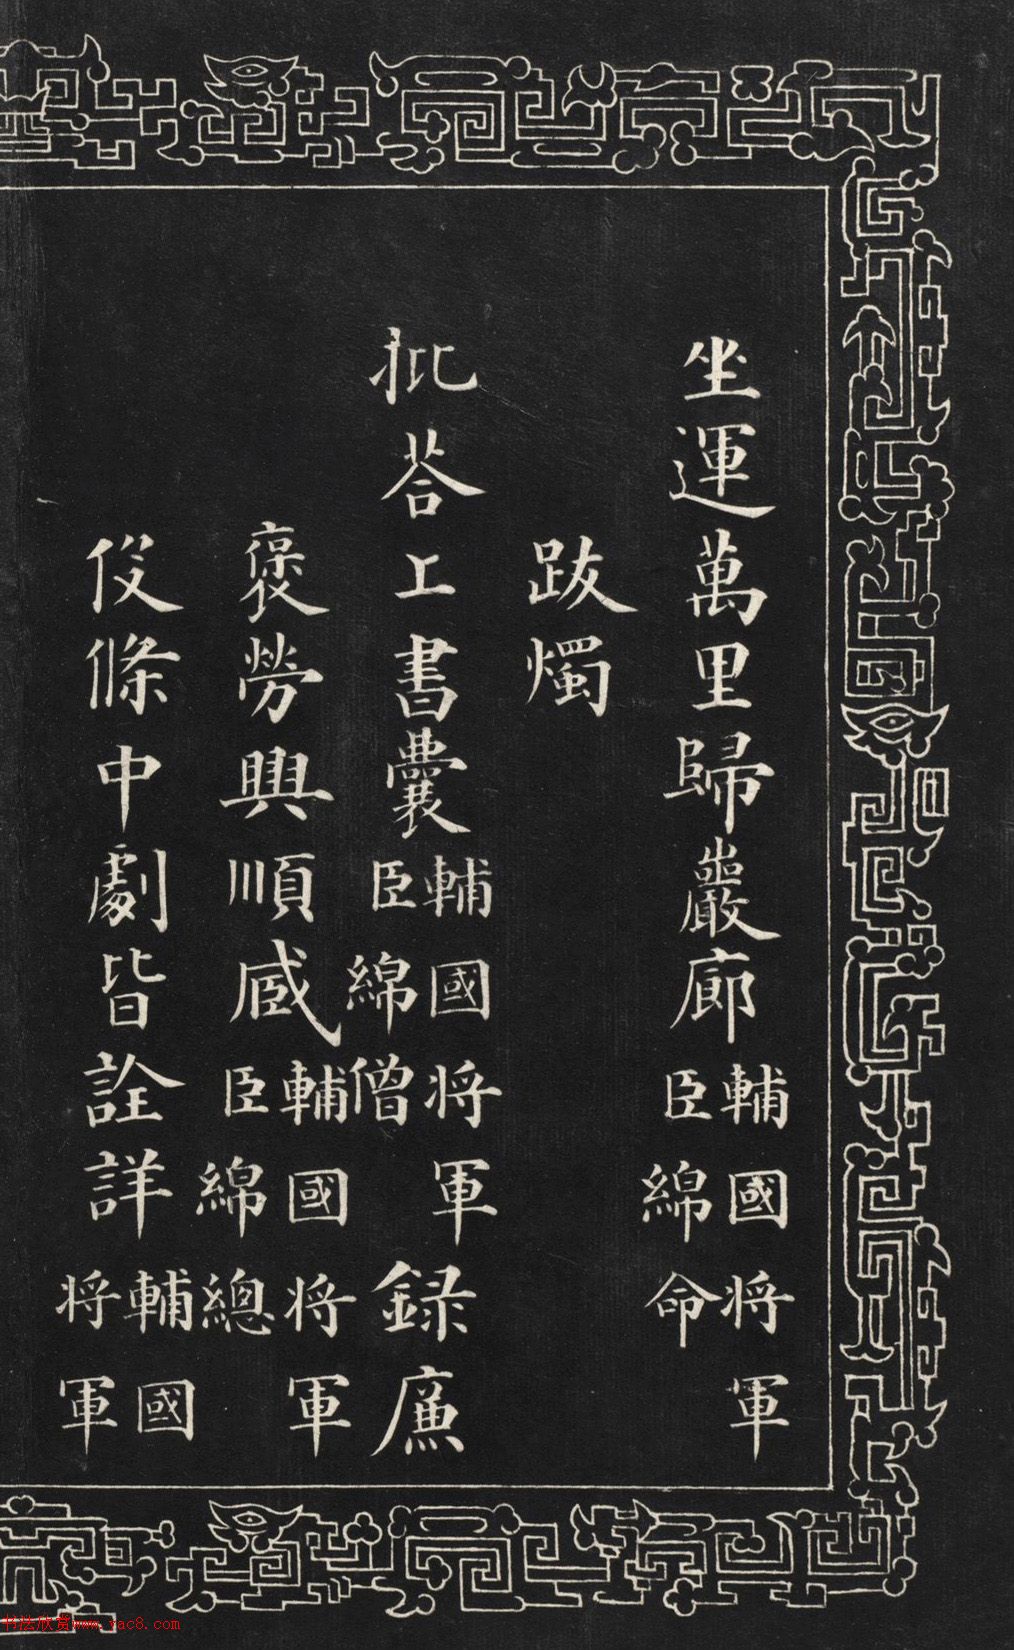 坐運萬里歸巖廊輔國将軍臣綿命
跋燭
批荅上書囊輔國将軍臣綿僧録廉
褒勞興順感輔國将軍臣綿總
伇條中劇皆詮詳輔國将軍
书法欣赏www.yac8.com